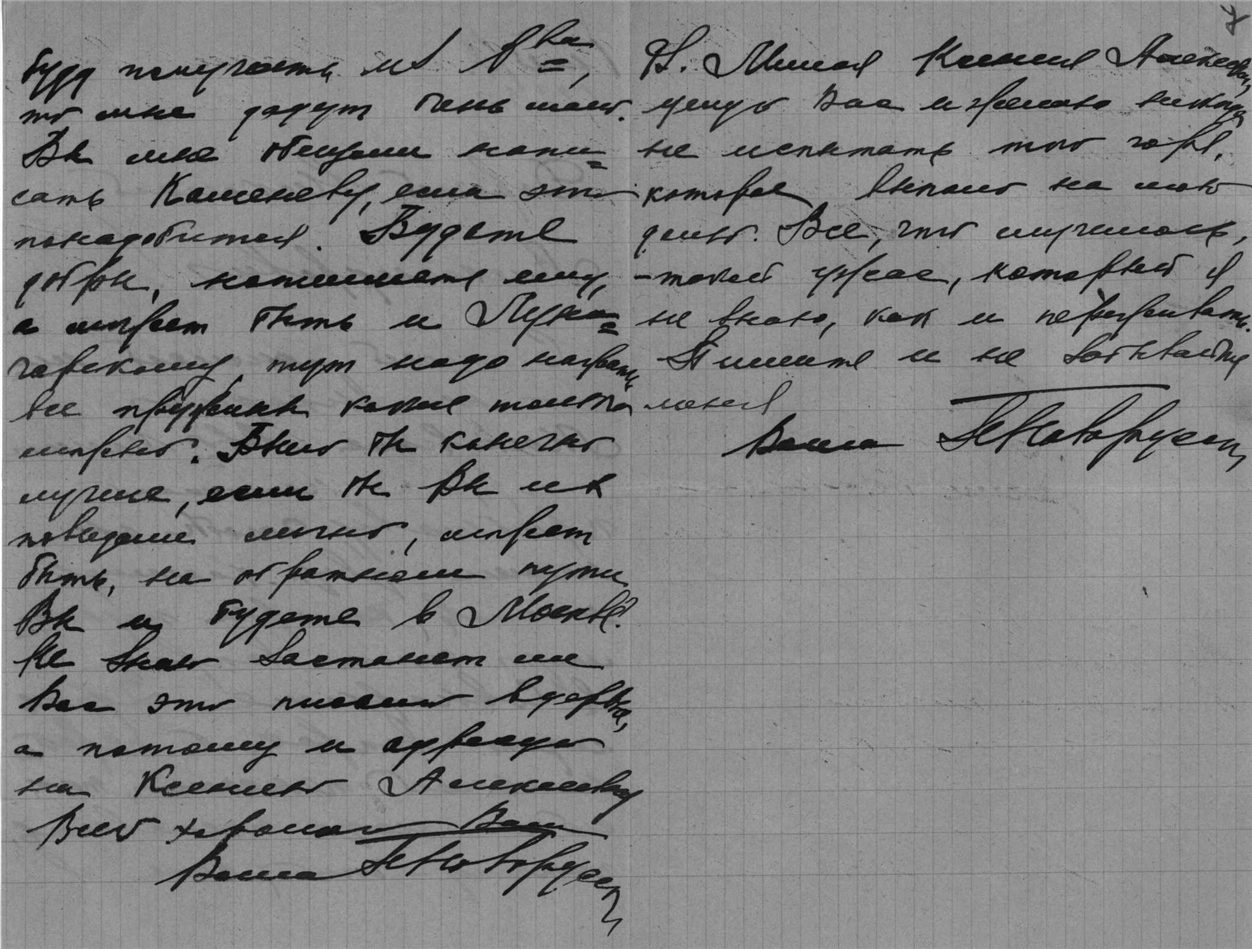 буду получать из два=,
то мне дадут очень мало.
Вы мне обещали напи=
сать Каменеву, если это
понадобится. Будьте
добры, напишите ему,
а может быть и Луна=
чарскому, тут надо нажать
все пружины какие только
можно. Было бы конечно
лучше, если бы Вы их
повидали лично, может
быть, на обратном пути
Вы и будете в Москве.
Не знаю застанет ли
Вас это письмо в деревне,
а потому и адресую
на Ксению Алексеевну
Всего хорошего Вам
Ваша
Милая Ксения Алексеевна,
целую Вас и желаю никогда
не испытать того горя,
которое выпало на мою
долю. Все, что случилось,
-такой ужас, который я
не знаю, как и переживать.
Пишите и не забывайте
меня
Ваша